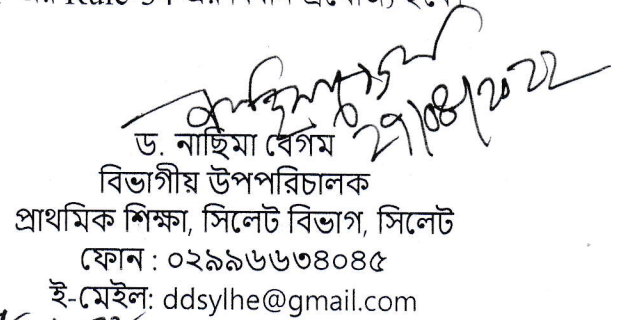 Rule
নাছিমা বেগম 29/08/2022
ড. নাছিমা বেগম
বিভাগীয় উপপরিচালক
প্রাথমিক শিক্ষা, সিলেট বিভাগ, সিলেট
ফোন : ০২৯৯৬৬৩৪০৪৫
ই-মেইল: ddsylhe@gmail.com